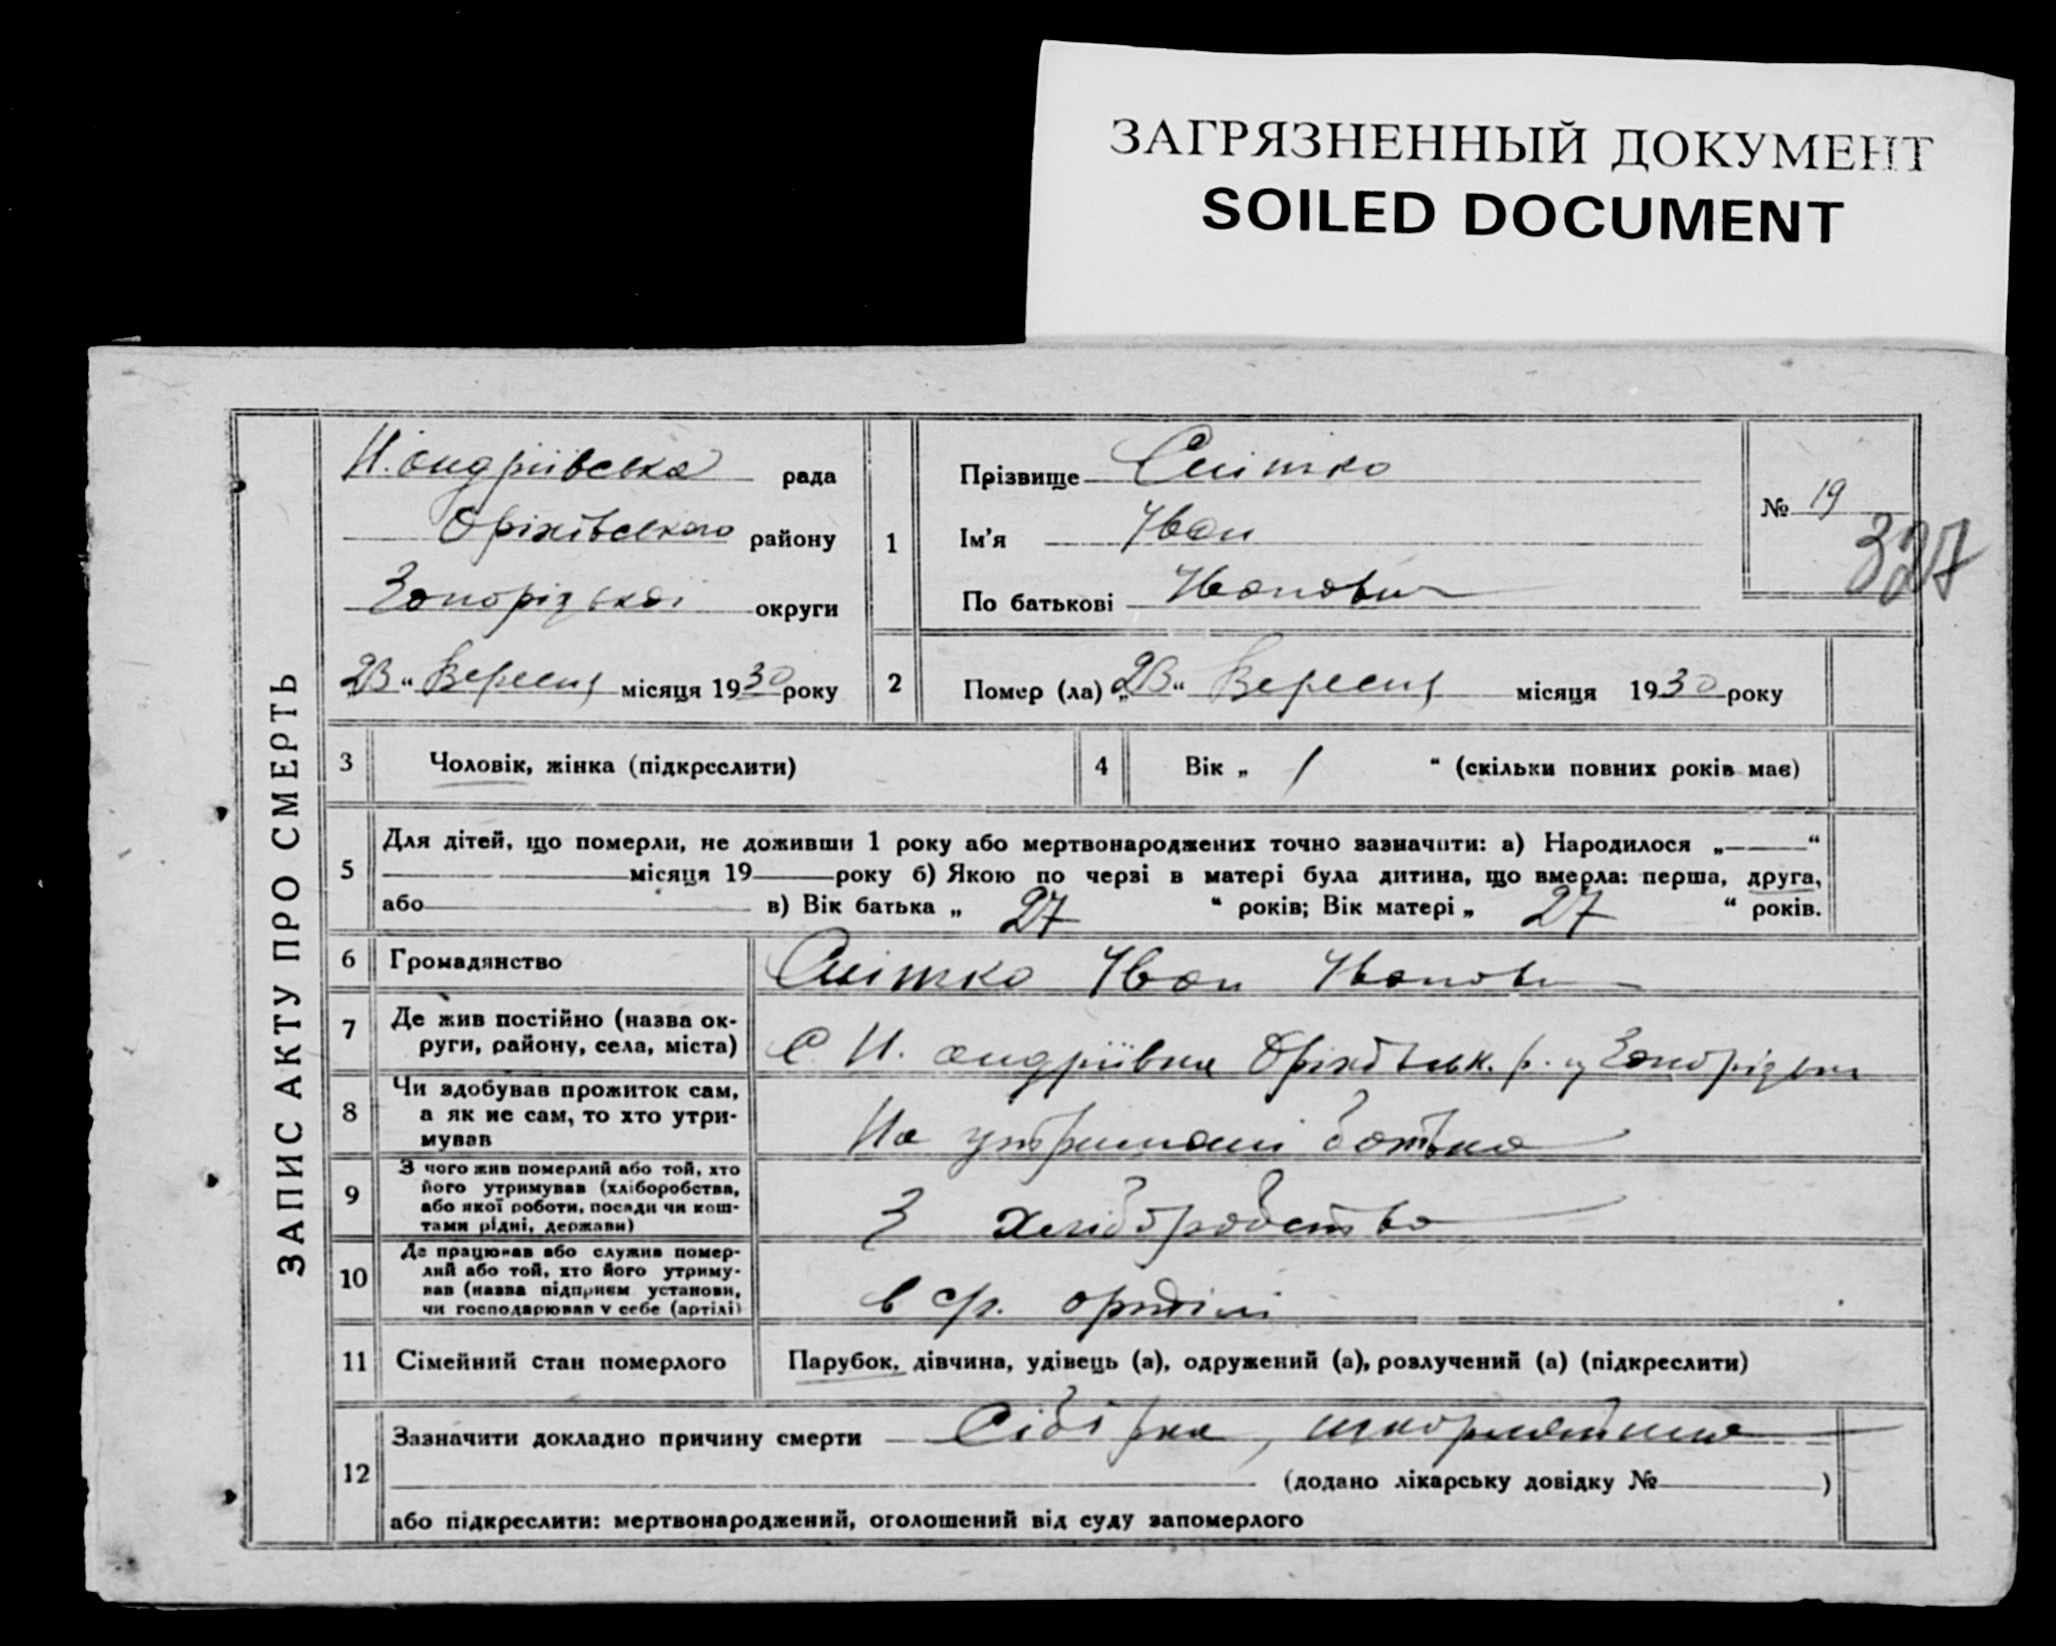 ЗАГРЯЗНЕННЫЙ ДОКУМЕНТ
SOILED DOCUMENT
ЗАПИС АКТУ ПРО СМЕРТЬ
Н. андріївська рада
Оріхівського району
Запорізької округи
23 “ Вересня місяця 1930 року
1
Прізвище
Ім'я Іван
По батькові Іванович
№ 19
327
2
Помер (ла) „ 23 “ Вересня місяця 1930 року
3
Чоловік, жінка (підкреслити)
4
Вік „ 1 “ (скільки повних років має)
5
Для дітей, що померли, не доживши 1 року або мертвонароджених точно зазначити: а) Народилося „ “
місяця 19 року б) Якою по черзі в матері була дитина, що вмерла: перша, друга,
або в) Вік батька „ 27 “ років; Вік матері „ 27 “ років.
6
Громадянство
Іван Іванович
7
Де жив постійно (назва ок-
руги, району, села, міста)
С. Н. андріївка Оріхівськ. р.
8
Чи здобував прожиток сам,
а як не сам, то хто утри-
мував
На утриманні батька
9
З чого жив померлий або той, хто
його утримував (хліборобства,
або якої роботи, посади чи кош-
тами рідні, держави)
З хліборобства
10
Де працював або служив помер-
лий або той, хто його утриму-
вав (назва підприєм установи,
чи господарював у себе (артілі)
в с/г. артілі
11
Сімейний стан померлого
Парубок, дівчина, удівець (а), одружений (а), розлучений (а) (підкреслити)
12
Зазначити докладно причину смерти
(додано лікарську довідку № )
або підкреслити: мертвонароджений, оголошений від суду запомерлого